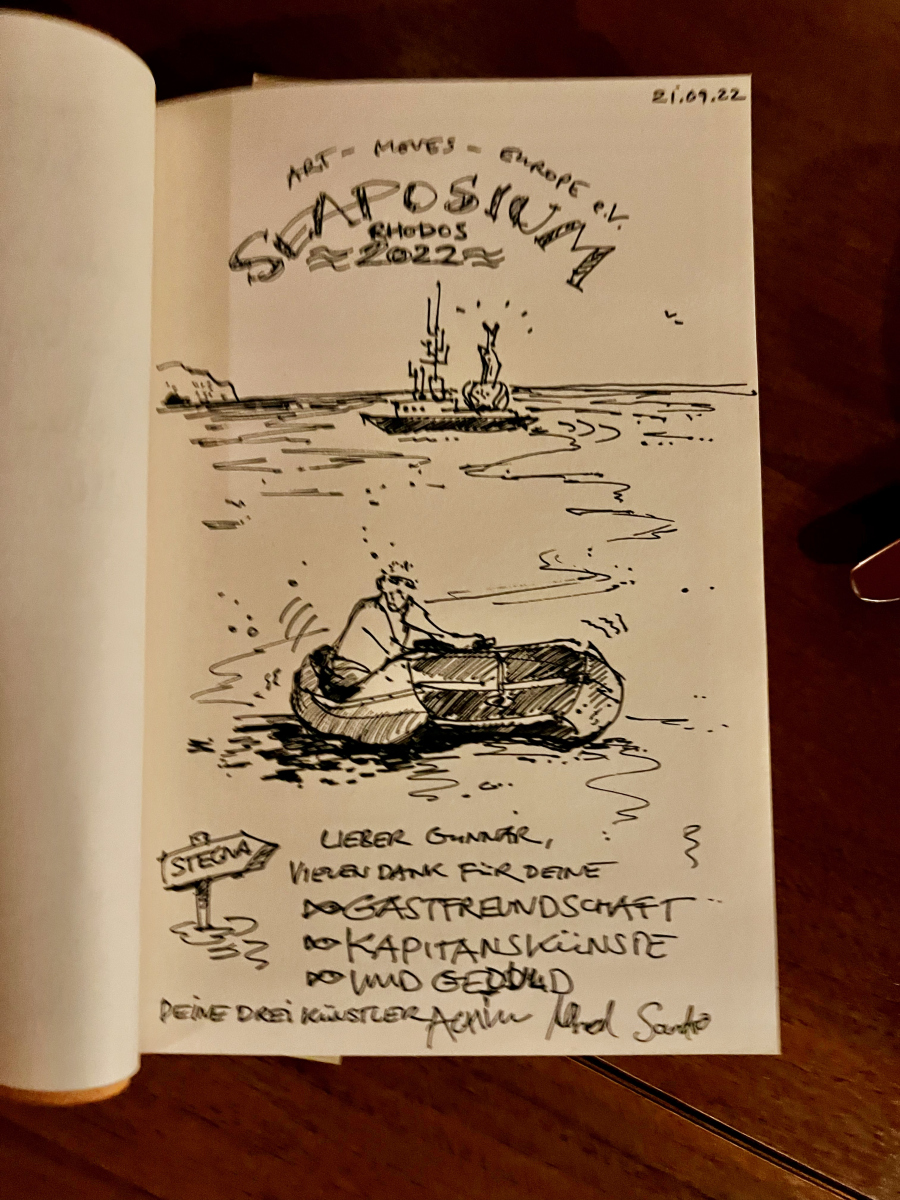 21.09.22
ART - MOVES - EUROPE e.V.
SEAPOSIUM
RHODOS
≈ 2022 ≈
STEGNA
LIEBER GUNNAR,
VIELEN DANK FÜR DEINE
GASTFREUNDSCHAFT
KAPITÄNSKÜNSTE
UND GEDULD
DEINE DREI KÜNSTLER Achim